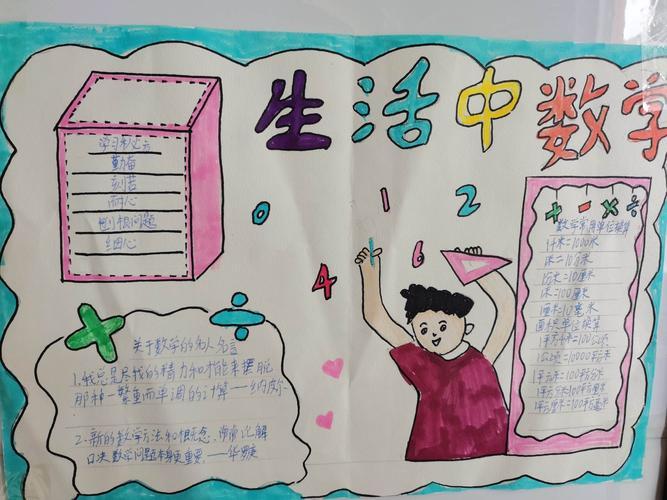 生活中数学
学习
勤奋
刻苦
耐心
刨根问题
细心
0
1
2
4
6
+ - × ÷
数学常用单位换算
1千米=1000米
1米=10分米
1分米=10厘米
1米=100厘米
1厘米=10毫米
面积单位换算
1平方千米=100公顷
1公顷=10000平方米
1平方米=100平方分米
1平方分米=100平方厘米
1平方厘米=100平方毫米
关于数学的名人名言
1.我总是尽我的精力和才能来摆脱
那种一繁重而单调的计算——纳皮尔
2.新的数学方法和概念,常常比解
决数学问题本身更重要.——华罗庚